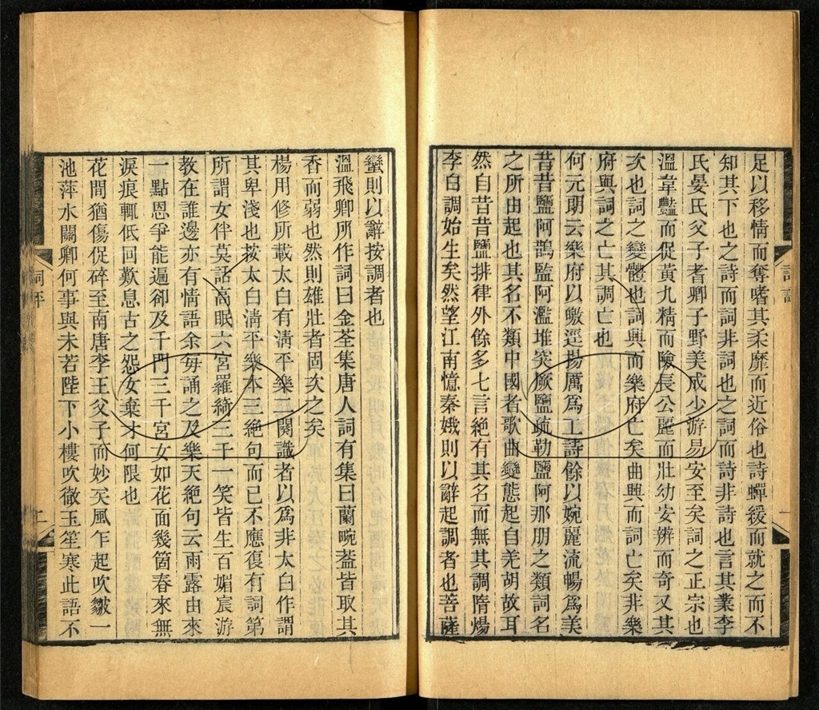 足以移情而奪嗜其柔靡而近俗也詩嘽緩而就之而不
知其下也之詩而詞非詞也之詞而詩非詩也言其業李
氏晏氏父子耆卿子野美成少游易安至矣詞之正宗也
溫韋豔而促黃九精而險長公麗而壯幼安辨而奇又其
次也詞之變體也詞興而樂府亡矣曲興而詞亡矣非樂
府與詞之亡其調亡也
何元朗云樂府以皦逕揚厲爲工詩餘以婉麗流暢爲美
昔昔鹽阿鵲監阿濫堆突厥鹽疏勒鹽阿那朋之類詞名
之所由起也其名不類中國者歌曲變態起自羌胡故耳
然自昔昔鹽排律外餘多七言絶有其名而無其調隋煬
李白調始生矣然望江南憶秦娥則以辭起調者也菩薩
蠻則以辭按調者也
溫飛卿所作詞曰金荃集唐人詞有集曰蘭畹葢皆取其
香而弱也然則雄壯者固次之矣
楊用修所載太白有淸平樂二闋識者以爲非太白作謂
其卑淺也按太白淸平樂本三絶句而已不應復有詞第
所謂女伴莫話高眠六宮羅綺三千一笑皆生百媚宸游
教在誰邊亦有情語余每誦之及樂天絶句云雨露由來
一點恩爭能遍卻及千門三千宮女如花面幾箇春來無
淚痕輒低回歎息古之怨女棄才何限也
花間猶傷促碎至南唐李王父子而妙矣風乍起吹皺一
池萍水關卿何事與未若陛下小樓吹徹玉笙寒此語不
詞評
二